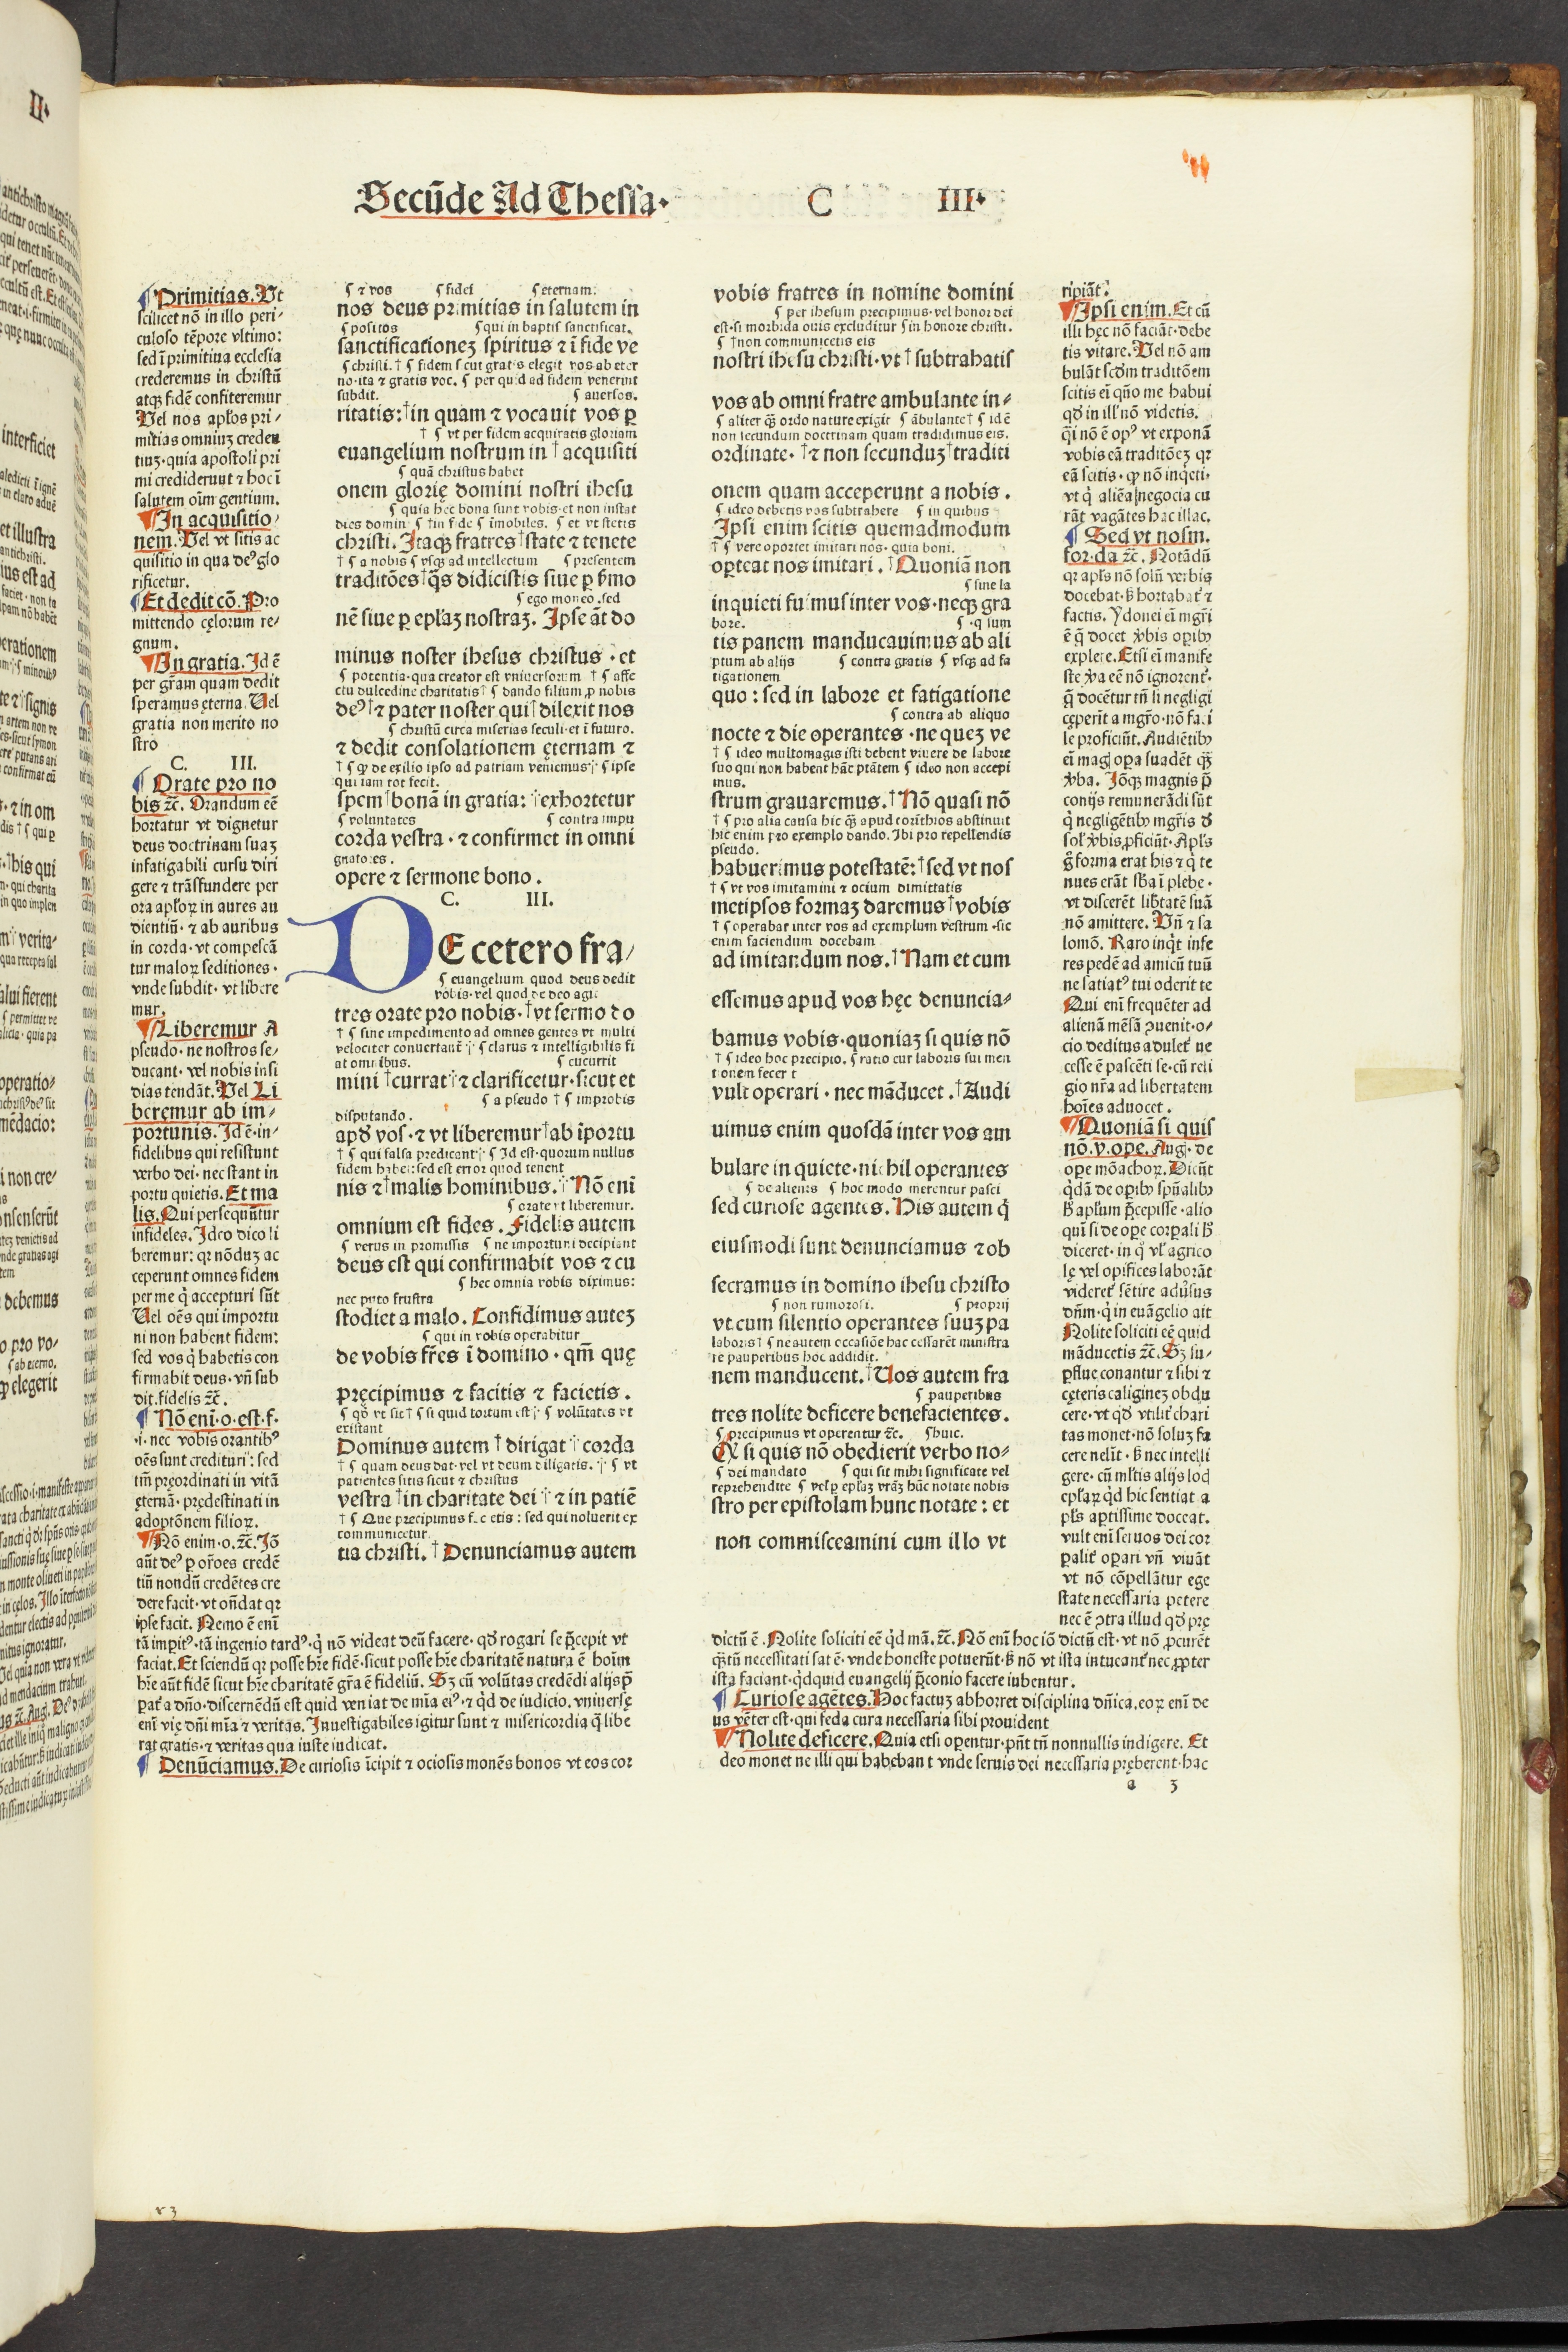 Secūde Ad Thessa· C III·
¶ Primitias. Vt
scilicet nō in illo peri⸗
culoso tēpore vltimo:
sed ī primitiua ecclesia
crederemus in christū
atqꝫ fidē confiteremur
Vel nos apłos pri⸗
mitias omniuꝫ creden
tiuꝫ·quia apostoli pri
mi crediderunt ⁊ hoc ī
salutem oīm gentium.
¶ In acquisitio⸗
nem. Vel vt sitis ac
quisitio in qua deꝰ glo
rificetur.
¶ Et dedit cō. Pro
mittendo cęlorum re⸗
gnum.
¶ In gratia. Id ē
per grām quam dedit
speramus ęterna. Vel
gratia non merito no
stro
C. III.
¶ Orate pro no
bis ⁊c̄. Orandum eē
hortatur vt dignetur
deus doctrinam suaꝫ
infatigabili cursu diri
gere ⁊ trāsfundere per
ora apłoꝝ in aures au
dientiū· ⁊ ab auribus
in corda· vt compescā
tur maloꝝ seditiones·
vnde subdit· vt libere
mur.
¶ Liberemur A
pseudo· ne nostros se⸗
ducant· vel nobis insi
dias tendāt. Vel Li
beremur ab im⸗
portunis. Id ē·in⸗
fidelibus qui resistunt
verbo dei· nec stant in
portu quietis. Et ma
lis. Qui persequūtur
infideles. Ideo dico li
beremur: qꝛ nōduꝫ ac
ceperunt omnes fidem
per me q̇ accepturi sūt
Vel oēs qui importu
ni non habent fidem:
sed vos q̇ habetis con
firmabit deus· vn̄ sub
dit. fidelis ⁊c̄.
¶ Nō enī·o·est·f·
·i· nec vobis orantibꝰ
oēs sunt credituri: sed
tm̄ pręordinati in vitā
ęternā· prędestinati in
adoptōnem filioꝝ.
¶ Nō enim·o·⁊c̄. Iō
aūt deꝰ ꝑ or̄oes credē
tiū nondū credētes cre
dere facit· vt on̄dat qꝛ
ipse facit. Nemo ē enī
tā impitꝰ·tā ingenio tardꝰ·q̇ nō videat deū facere· qď rogari se p̄cepit vt
faciat. Et sciendū qꝛ posse hr̄e fidē·sicut posse hr̄e charitatē natura ē hoīm
hr̄e aūt fidē sicut hr̄e charitatē gr̄a ē fideliū. Sꝫ cū volūtas credēdi alijs p̄
paꝉ a dn̄o·discernēdū est quid veniat de mīa eiꝰ·⁊ q̇d de iudicio. vniuersę
enī vię dn̄i mīa ⁊ veritas. Inuestigabiles igitur sunt ⁊ misericordia q̄ libe
rat gratis·⁊ veritas qua iuste iudicat.
¶ Denūciamus. De curiosis īcipit ⁊ ociosis monēs bonos vt eos cor
¶ ⁊ vos ¶ fidei ¶ eternam.
nos deus primitias in salutem in
¶ positos ¶ qui in baptis sanctificat.
sanctificationeꝫ spiritus ⁊ ī fide ve
¶ christi. † ¶ fidem sicut gratis elegit vos ab eter
no·ita ⁊ gratis voc. ¶ per quid ad fidem venerint
subdit. ¶ auersos.
ritatis: †in quam ⁊ vocauit vos ꝑ
† ¶ vt per fidem acquiratis gloriam
euangelium nostrum in †acquisiti
¶ quā christus habet
onem glorię domini nostri ihesu
¶ quia hęc bona sunt vobis·et non instat
dies domini ¶ †in fide ¶ imobiles. ¶ et vt stetis
christi. Itaqꝫ fratres †state ⁊ tenete
† ¶ a nobis ¶ vsqꝫ ad intellectum ¶ presentem
traditōes †q̄s didicistis siue ꝑ ẜmo
¶ ego moneo·sed
nē siue ꝑ epłaꝫ nostraꝫ. Ipse āt do
minus noster ihesus christus · et
¶ potentia·qua creator est vniuersorum † ¶ affe
ctu dulcedine charitatis † ¶ dando filium ꝓ nobis
deꝰ †⁊ pater noster qui †dilexit nos
¶ christū circa miserias seculi·et ī futuro.
⁊ dedit consolationem ęternam ⁊
† ¶ ꝙ de exilio ipso ad patriam veniemus ¶ ipse
qui iam tot fecit.
spem †bonā in gratia: exhortetur
¶ voluntates ¶ contra impu
corda vestra · ⁊ confirmet in omni
gnatores.
opere ⁊ sermone bono.
C. III.
DE cetero fra⸗
¶ euangelium quod deus dedit
vobis·vel quod de deo agit
tres orate pro nobis· †vt sermo do
† ¶ sine impedimento ad omnes gentes vt multi
velociter conuertant̄ ¶ clarus ⁊ intelligibilis fi
at omnibus. ¶ cucurrit
mini †currat ⁊ clarificetur·sicut et
¶ a pseudo † ¶ improbis
disputando.
apď vos·⁊ vt liberemur †ab īportu
† ¶ qui falsa predicant ¶ Id est·quorum nullus
fidem habet: sed est error quod tenent
nis ⁊ †malis hominibus. Nō enī
¶ orate vt liberemur.
omnium est fides. Fidelis autem
¶ verus in promissis ¶ ne importuni decipiant
deus est qui confirmabit vos ⁊ cu
¶ hec omnia vobis diximus:
nec puto frustra
stodiet a malo. Confidimus auteꝫ
¶ qui in vobis operabitur
de vobis fr̄es ī domino · qm̄ quę
pręcipimus ⁊ facitis ⁊ facietis.
¶ qď vt sit † ¶ si quid tortum est ¶ volūtates vt
existant
Dominus autem †dirigat corda
† ¶ quam deus dat·vel vt deum diligatis. ¶ vt
patientes sitis sicut ⁊ christus
vestra †in charitate dei ⁊ in patiē
† ¶ Que precipimus facietis: sed qui noluerit ex
communicetur
tia christi. †Denunciamus autem
vobis fratres in nomine domini
¶ per ihesum precipimus·vel honor dei
est·si morbida ouis excluditur ¶ in honore christi.
¶ †non communicetis eis
nostri ihesu christi·vt †subtrahatis
vos ab omni fratre ambulante in⸗
¶ aliter qꝫ ordo nature exigit ¶ ābulante † ¶ id ē
non secundum doctrinam quam tradidimus eis.
ordinate· †⁊ non secunduꝫ †traditi
onem quam acceperunt a nobis.
¶ ideo debetis vos subtrahere ¶ in quibus
Ipsi enim scitis quemadmodum
† ¶ vere oportet imitari nos· quia boni.
oꝑteat nos imitari. †Quoniā non
¶ sine la
inquieti fuimus inter vos·neqꝫ gra
bore. ¶ q̇ sum
tis panem manducauimus ab ali
ptum ab alijs ¶ contra gratis ¶ vsqꝫ ad fa
tigationem
quo: sed in labore et fatigatione
¶ contra ab aliquo
nocte ⁊ die operantes · ne queꝫ ve
† ¶ ideo multomagis isti debent viuere de labore
suo qui non habent hāc ptātem ¶ ideo non accepi
mus.
strum grauaremus. †Nō quasi nō
† ¶ pro alia causa hic qꝫ apud corīthios abstinuit
hic enim pro exemplo dando. Ibi pro repellendis
pseudo.
habuerimus potestatē: †sed vt nos
† ¶ vt vos imitamini ⁊ ocium dimittatis
metipsos formaꝫ daremus †vobis
† ¶ operabar inter vos ad exemplum vestrum·sic
enim faciendum docebam
ad imitandum nos. †Nam et cum
essemus apud vos hęc denuncia⸗
bamus vobis·quoniaꝫ si quis nō
† ¶ ideo hoc precipio. ¶ ratio cur laboris sui men
tionem fecerit
vult operari · nec māducet. †Audi
uimus enim quosdā inter vos am
bulare in quiete·nichil operantes
¶ de alienis ¶ hoc modo merentur pasci
sed curiose agentes. His autem q̇
eiusmodi sunt denunciamus ⁊ ob
secramus in domino ihesu christo
¶ non rumorosi. ¶ proprij
vt cum silentio operantes suuꝫ pa
laboris † ¶ ne autem occasiōe hac cessarēt ministra
re pauperibus hoc addidit.
nem manducent. †Uos autem fra
¶ pauperibus
tres nolite deficere benefacientes.
¶ precipimus vt operentur ⁊c̄. ¶ huic.
Qđ si quis nō obedierit verbo no⸗
¶ dei mandato ¶ qui sit mihi significate vel
reprehendite ¶ vel ꝑ epłaꝫ vrāꝫ hūc notate nobis
stro per epistolam hunc notate: et
non commisceamini cum illo vt
ripiāt.
¶ Ipsi enim. Et cū
illi hęc nō faciāt·debe
tis vitare. Vel nō am
bulāt scďm traditōem
scitis eī qn̄o me habui
qď in ill̄ nō videtis.
q̄i nō ē opꝰ vt exponā
vobis eā traditōeꝫ qꝛ
eā scitis· ꝙ nō inq̇eti·
vt q̇ aliēa negocia cu
rāt vagātes hac illac.
¶ Sed vt nosm.
for·da ⁊c̄. Notādū
qꝛ apłs nō solū verbis
docebat·ẜ hortabaꝉ ⁊
factis. Ydonei eī mgr̄i
ē q̇ docet v̇bis oꝑibꝫ
explere. Etsi eī manife
ste v̇a eē nō ignorenꝉ·
q̄ docētur tn̄ li negligi
cęperīt a mgr̄o·nō faci
le proficiūt. Audiētibꝫ
eī mag oꝑa suadēt qꝫ
v̇ba. Iōqꝫ magnis p̄
conijs remunerādi sūt
q̇ negligētibꝫ mgr̄is đ
soꝉ v̇bis ꝓficiūt· Apłs
ḡ forma erat his ⁊ q̇ te
nues erāt sb̄a ī plebe·
vt discerēt libtatē suā
nō amittere. Vn̄ ⁊ sa
lomō. Raro inq̇t infe
res pedē ad amicū tuū
ne satiaꝉ tui oderit te
Qui enī frequēter ad
alienā mēsā ꝯuenit·o⸗
cio deditus aduleꝉ ne
cesse ē pascēti se·cū reli
gio nr̄a ad libertatem
hoīes aduocet.
¶ Quoniā si quis
nō·v·ope. Aug·de
ope mōachoꝝ. Dicūt
q̇dā de oꝑibꝫ spūalibꝫ
ẜ apłum p̄cepisse·alio
quī si de oꝑe corꝑali ẜ
diceret·in q̊ vł agrico
lę vel opifices laborāt
videreꝉ sētire aduſus
dn̄m·q̇ in euāgelio ait
Nolite soliciti eē quid
māducetis ⁊c̄. Sꝫ su⸗
ꝑflue conantur ⁊ sibi ⁊
cęteris caligineꝫ obdu
cere·vt qď vtiliꝉ chari
tas monet·nō soluꝫ fa
cere nelīt·ẜ nec intelli
gere·cū ml̄tis alijs locꝭ
epłaꝝ q̇d hic sentiat a
pl̄s aꝑtissime doceat.
vult enī seruos dei cor
ꝑaliꝉ oꝑari vn̄ viuāt
vt nō cōpellātur ege
state necessaria petere
nec ē ꝯtra illud qď prę
dictū ē. Nolite soliciti eē q̇d mā.⁊c̄. Nō enī hoc iō dictū est·vt nō ꝓcurēt
q̄tū necessitati sat ē·vnde honeste potuerūt·ẜ nō vt ista intueanꝉ nec ꝓpter
ista faciant·q̇dquid euangelij p̄conio facere iubentur.
¶ Curiose agētes. Hoc factuꝫ abhorret disciplina dn̄ica.eoꝝ enī de
us vēter est·qui feda cura necessaria sibi prouident
¶ Nolite deficere. Quia etsi oꝑentur·pn̄t tn̄ nonnullis indigere. Et
deo monet ne illi qui habebant vnde seruis dei necessaria pręberent·hac
a 3